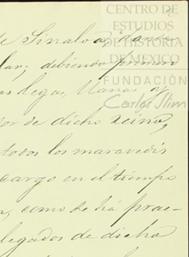 CENTRO DE
ESTUDIOS
DE HISTORIA
DE MÉXICO
FUNDACIÓN
Carlos Slim
de Sinaloa,
lar, debiendo
llega,
or de dicho Reino,
todos los maravedis
cargo en el tiempo
como se ha prac-
legados de dicha